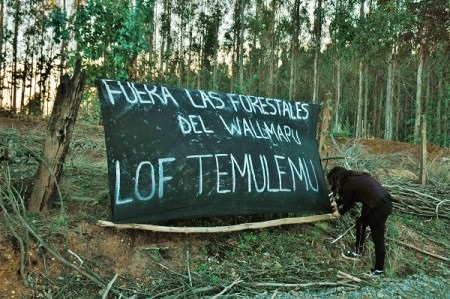 FUERA LAS FORESTALES
DEL WALLMAPU
LOF TEMULEMU